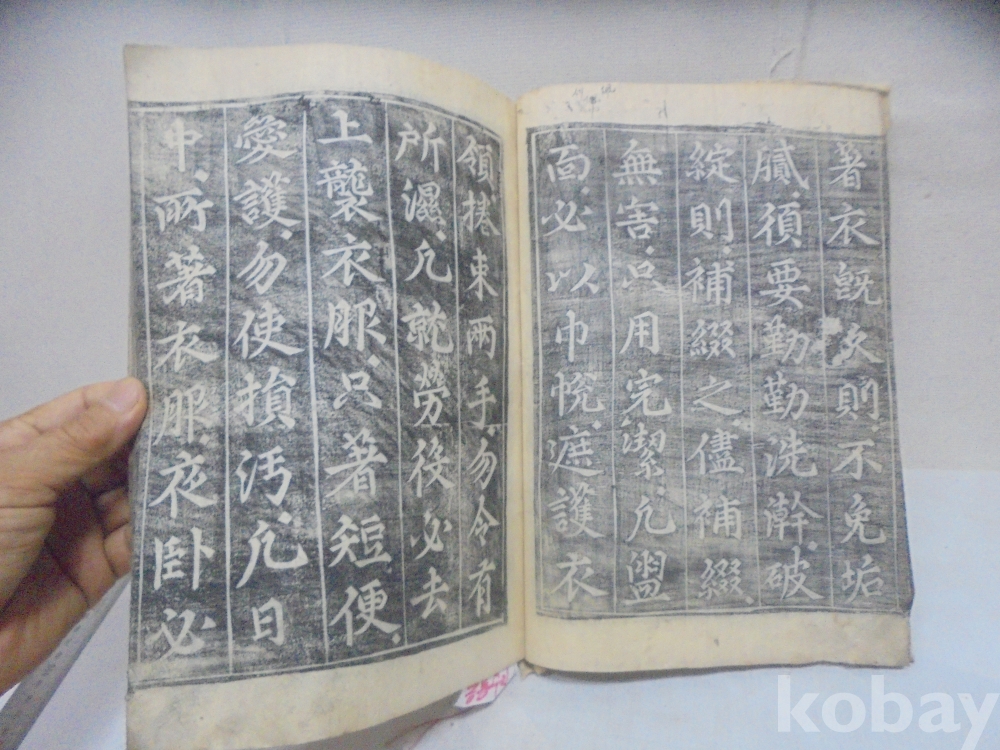 著衣旣久則不免垢
膩須要勤勤洗澣破
綻則補綴之儘補綴
無害只用完潔凡盥
面必以巾帨遮護衣
領捲束兩手勿令有
所濕凡就勞役必去
上襲衣服只著短便
愛護勿使損汚凡日
中所著衣服夜卧必
kobay